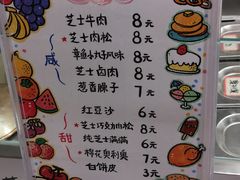 芝士牛肉 8元
芝士肉松 8元
章鱼小丸子风味 8元
咸
芝士卤肉 8元
葱香臊子 7元
红豆沙 6元
芝士巧克力肉松 8元
甜
纯芝士满满 6元
棉花奥利奥 7元
白饼皮 3元